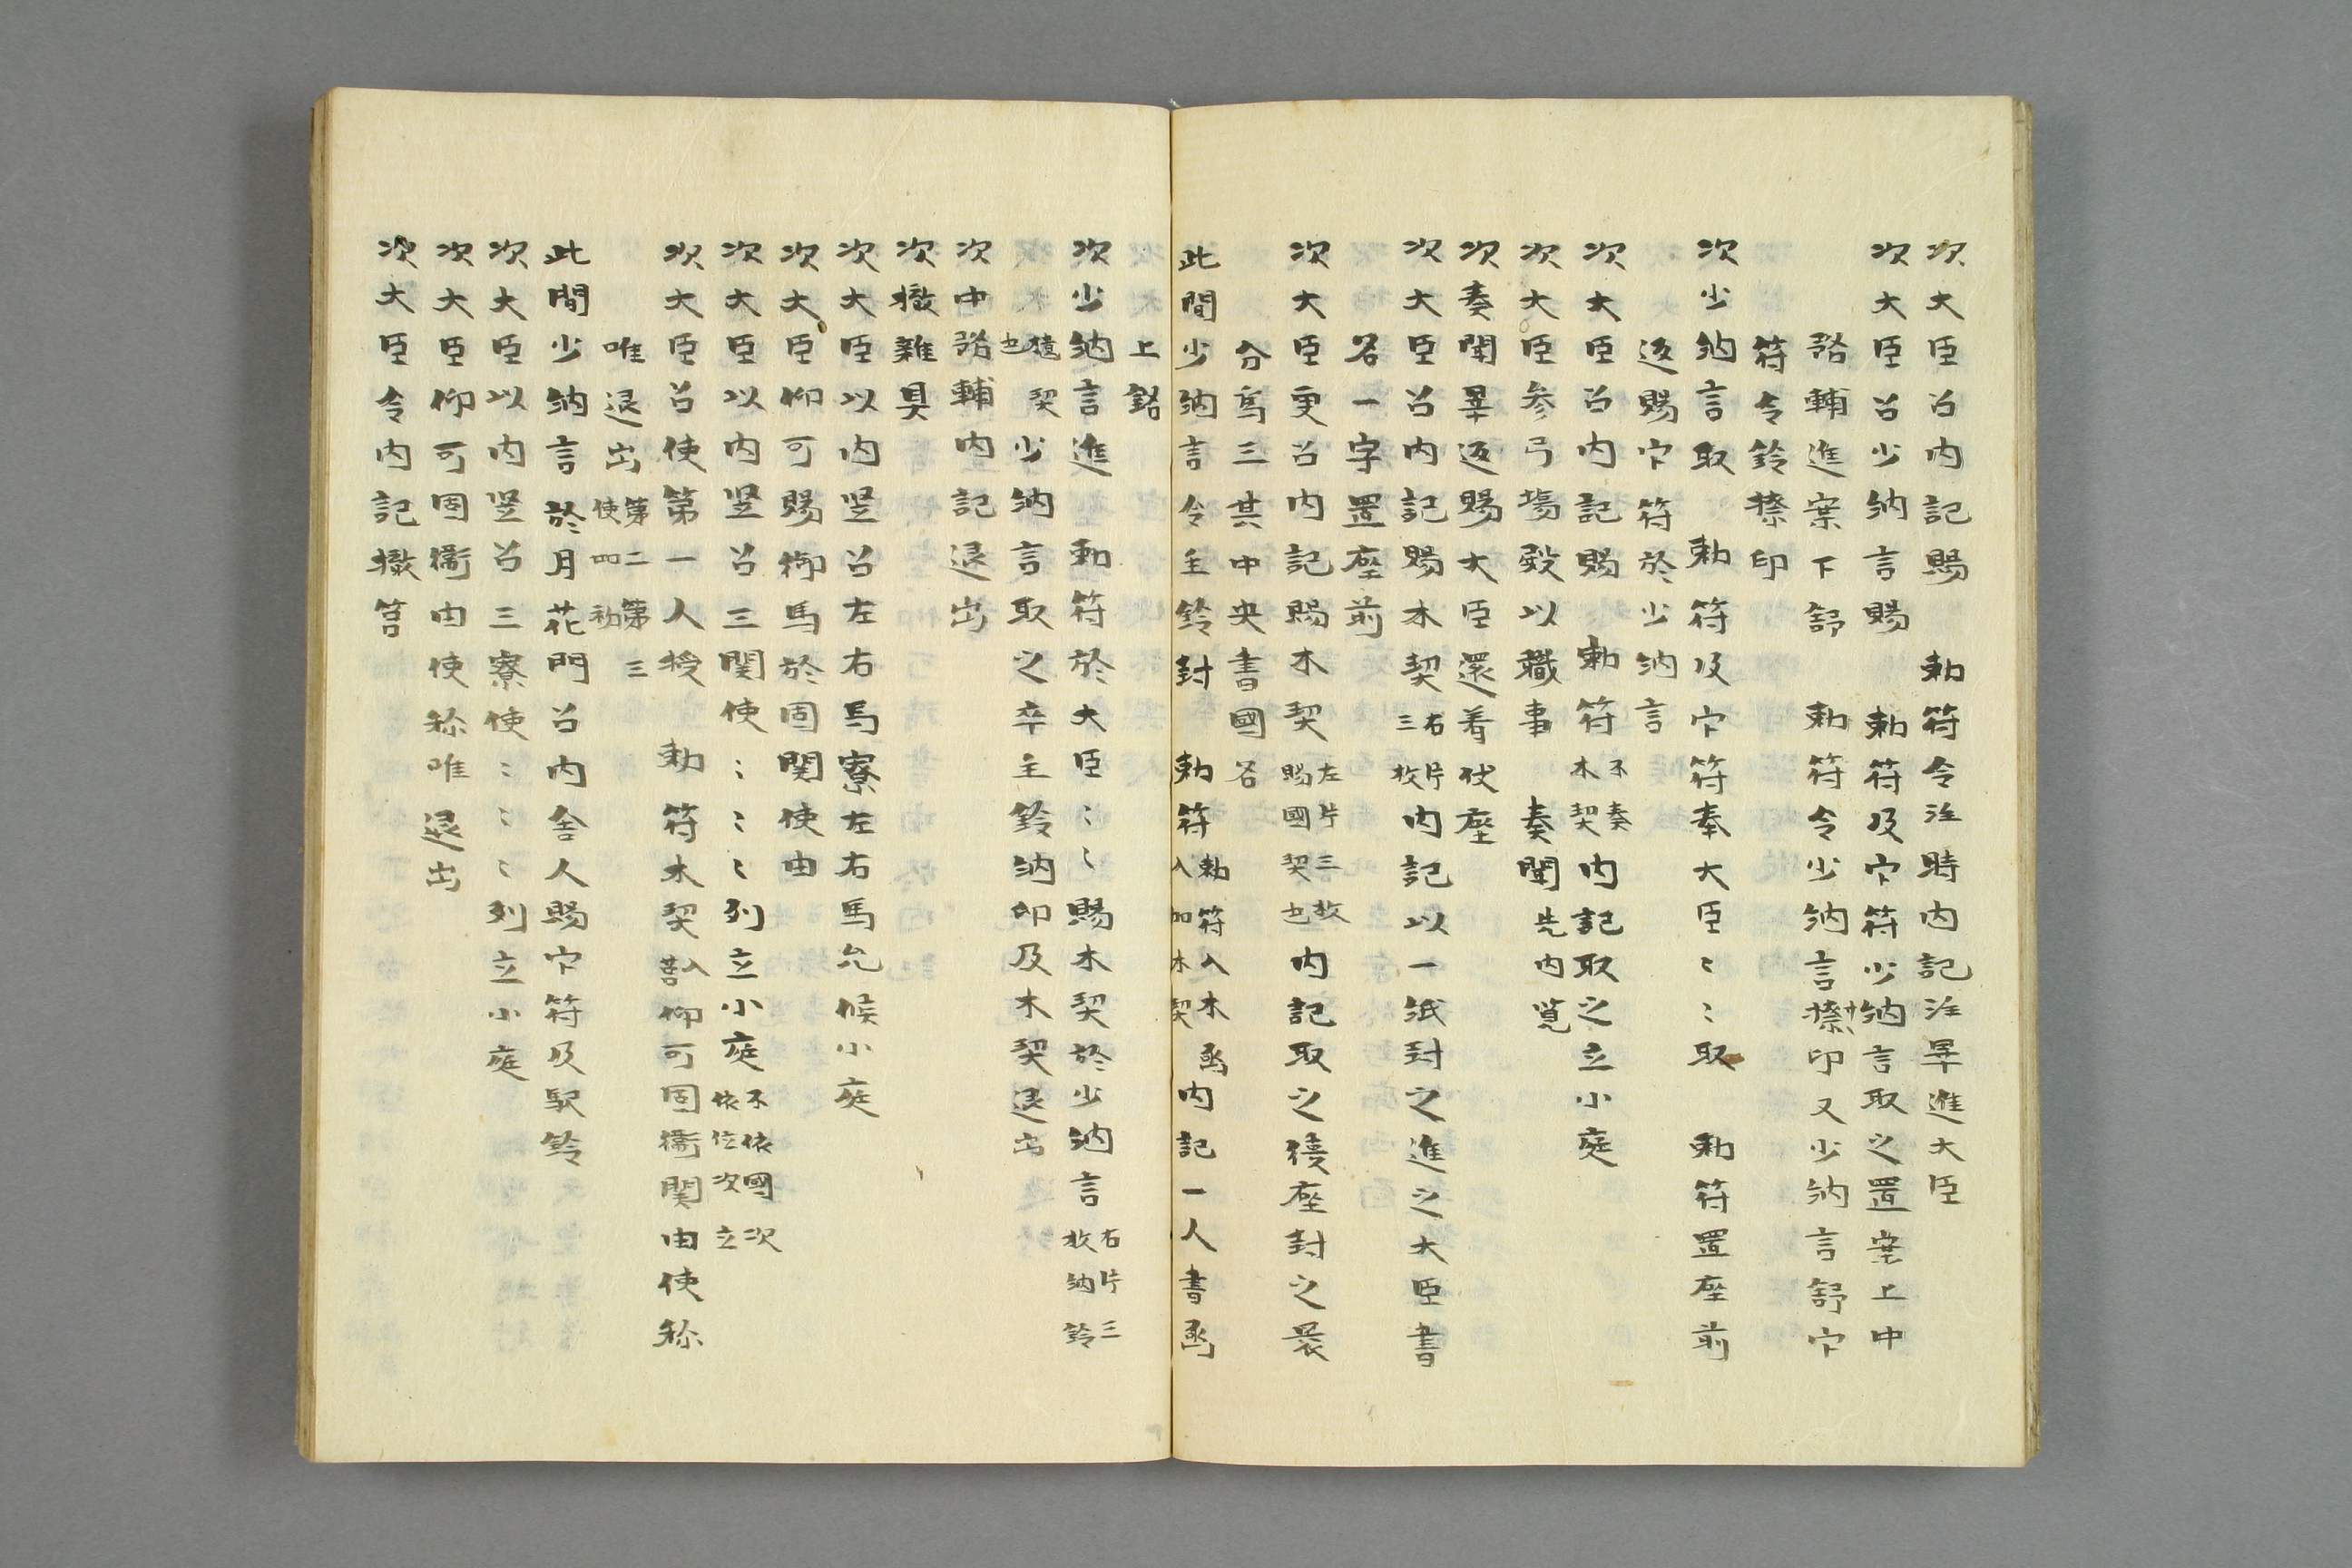 次大臣召内記賜　勅符令注時内記注畢進大臣
次大臣召少納言賜　勅符及官符少納言取之置案上中
務輔進案下舒　勅符令少納言捺印又少納言舒官
符令鈴捺印
次少納言取　勅符及官符奉大臣〻〻取　勅符置座前
返賜官符於少納言
次大臣召内記賜　勅符不奏木契内記取之立小庭
次大臣参弓場殿以職事　奏聞先内覧
次奏聞畢返賜大臣還着仗座
次大臣召内記賜木契右片三枚内記以一紙封之進之大臣書
名一字置座前
次大臣更召内記賜木契左片三枚賜国契也内記取之復座封之裹
分為三其中央書國名
此間少納言令主鈴封　勅符勅符入木函入加木契内記一人書函
上銘
次少納言進　勅符於大臣〻〻賜木契於少納言右片三枚納鈴
契也少納言取之卒主鈴納印及木契退出
次中務輔内記退出
次撤雑具
次大臣以内竪召左右馬寮左右馬允候小庭
次大臣仰可賜御馬於固関使由
次大臣以内竪召三関使〻〻〻列立小庭不依國次依位次立
次大臣召使第一人授　勅符木契入筥仰可固衛関由使称
唯退出第二第三使如初
此間少納言於月花門召内舎人賜官符及駅鈴
次大臣以内竪召三寮使〻〻〻列立小庭
次大臣仰可固衛由使称唯退出
次大臣令内記撤筥